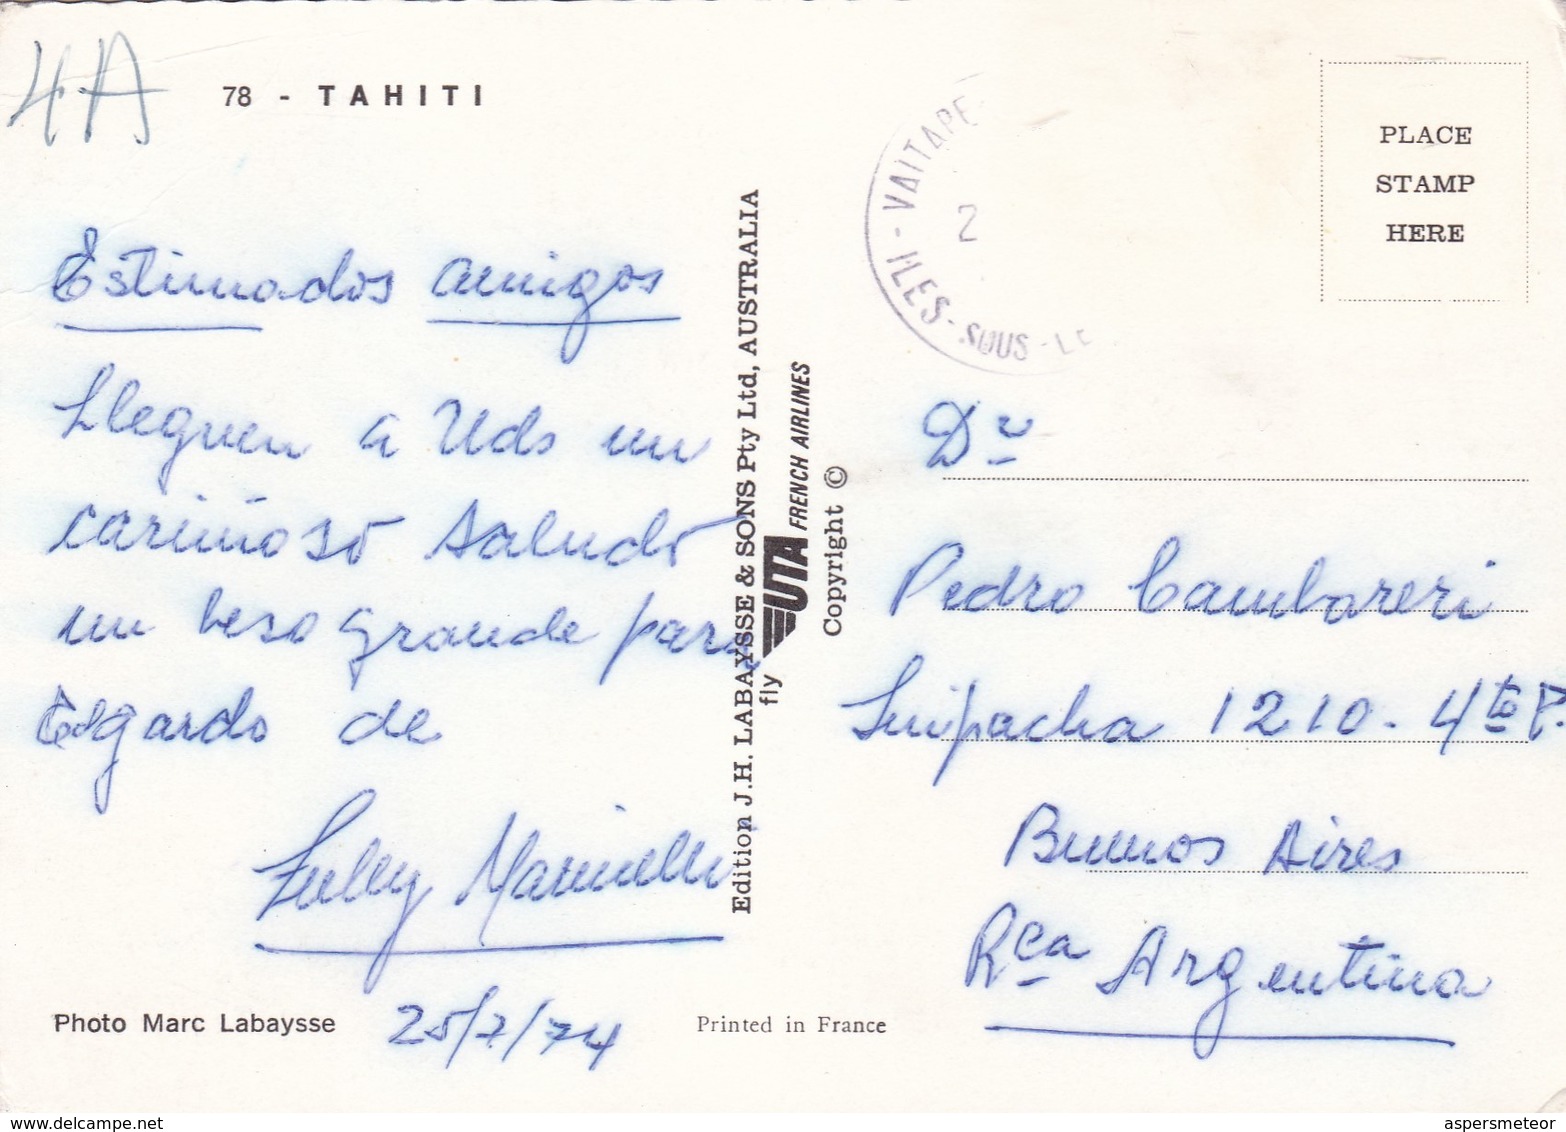 4A
78 - TAHITI
Estimados amigos
Lleguen a Uds un
cariñoso saludo
un beso grande para
Edgardo de
Marinelli
25/7/74
Photo Marc Labaysse
Printed in France
Edition J.H. LABAYSSE & SONS Pty Ltd, AUSTRALIA
fly UTA FRENCH AIRLINES
Copyright ©
VAITAPE
2
- ILES - SOUS - LE
PLACE
STAMP
HERE
Dr
Pedro Cambareri
Suipacha 1210 - 4to P
Buenos Aires
Rca Argentina
www.delcampe.net
aspersmeteor